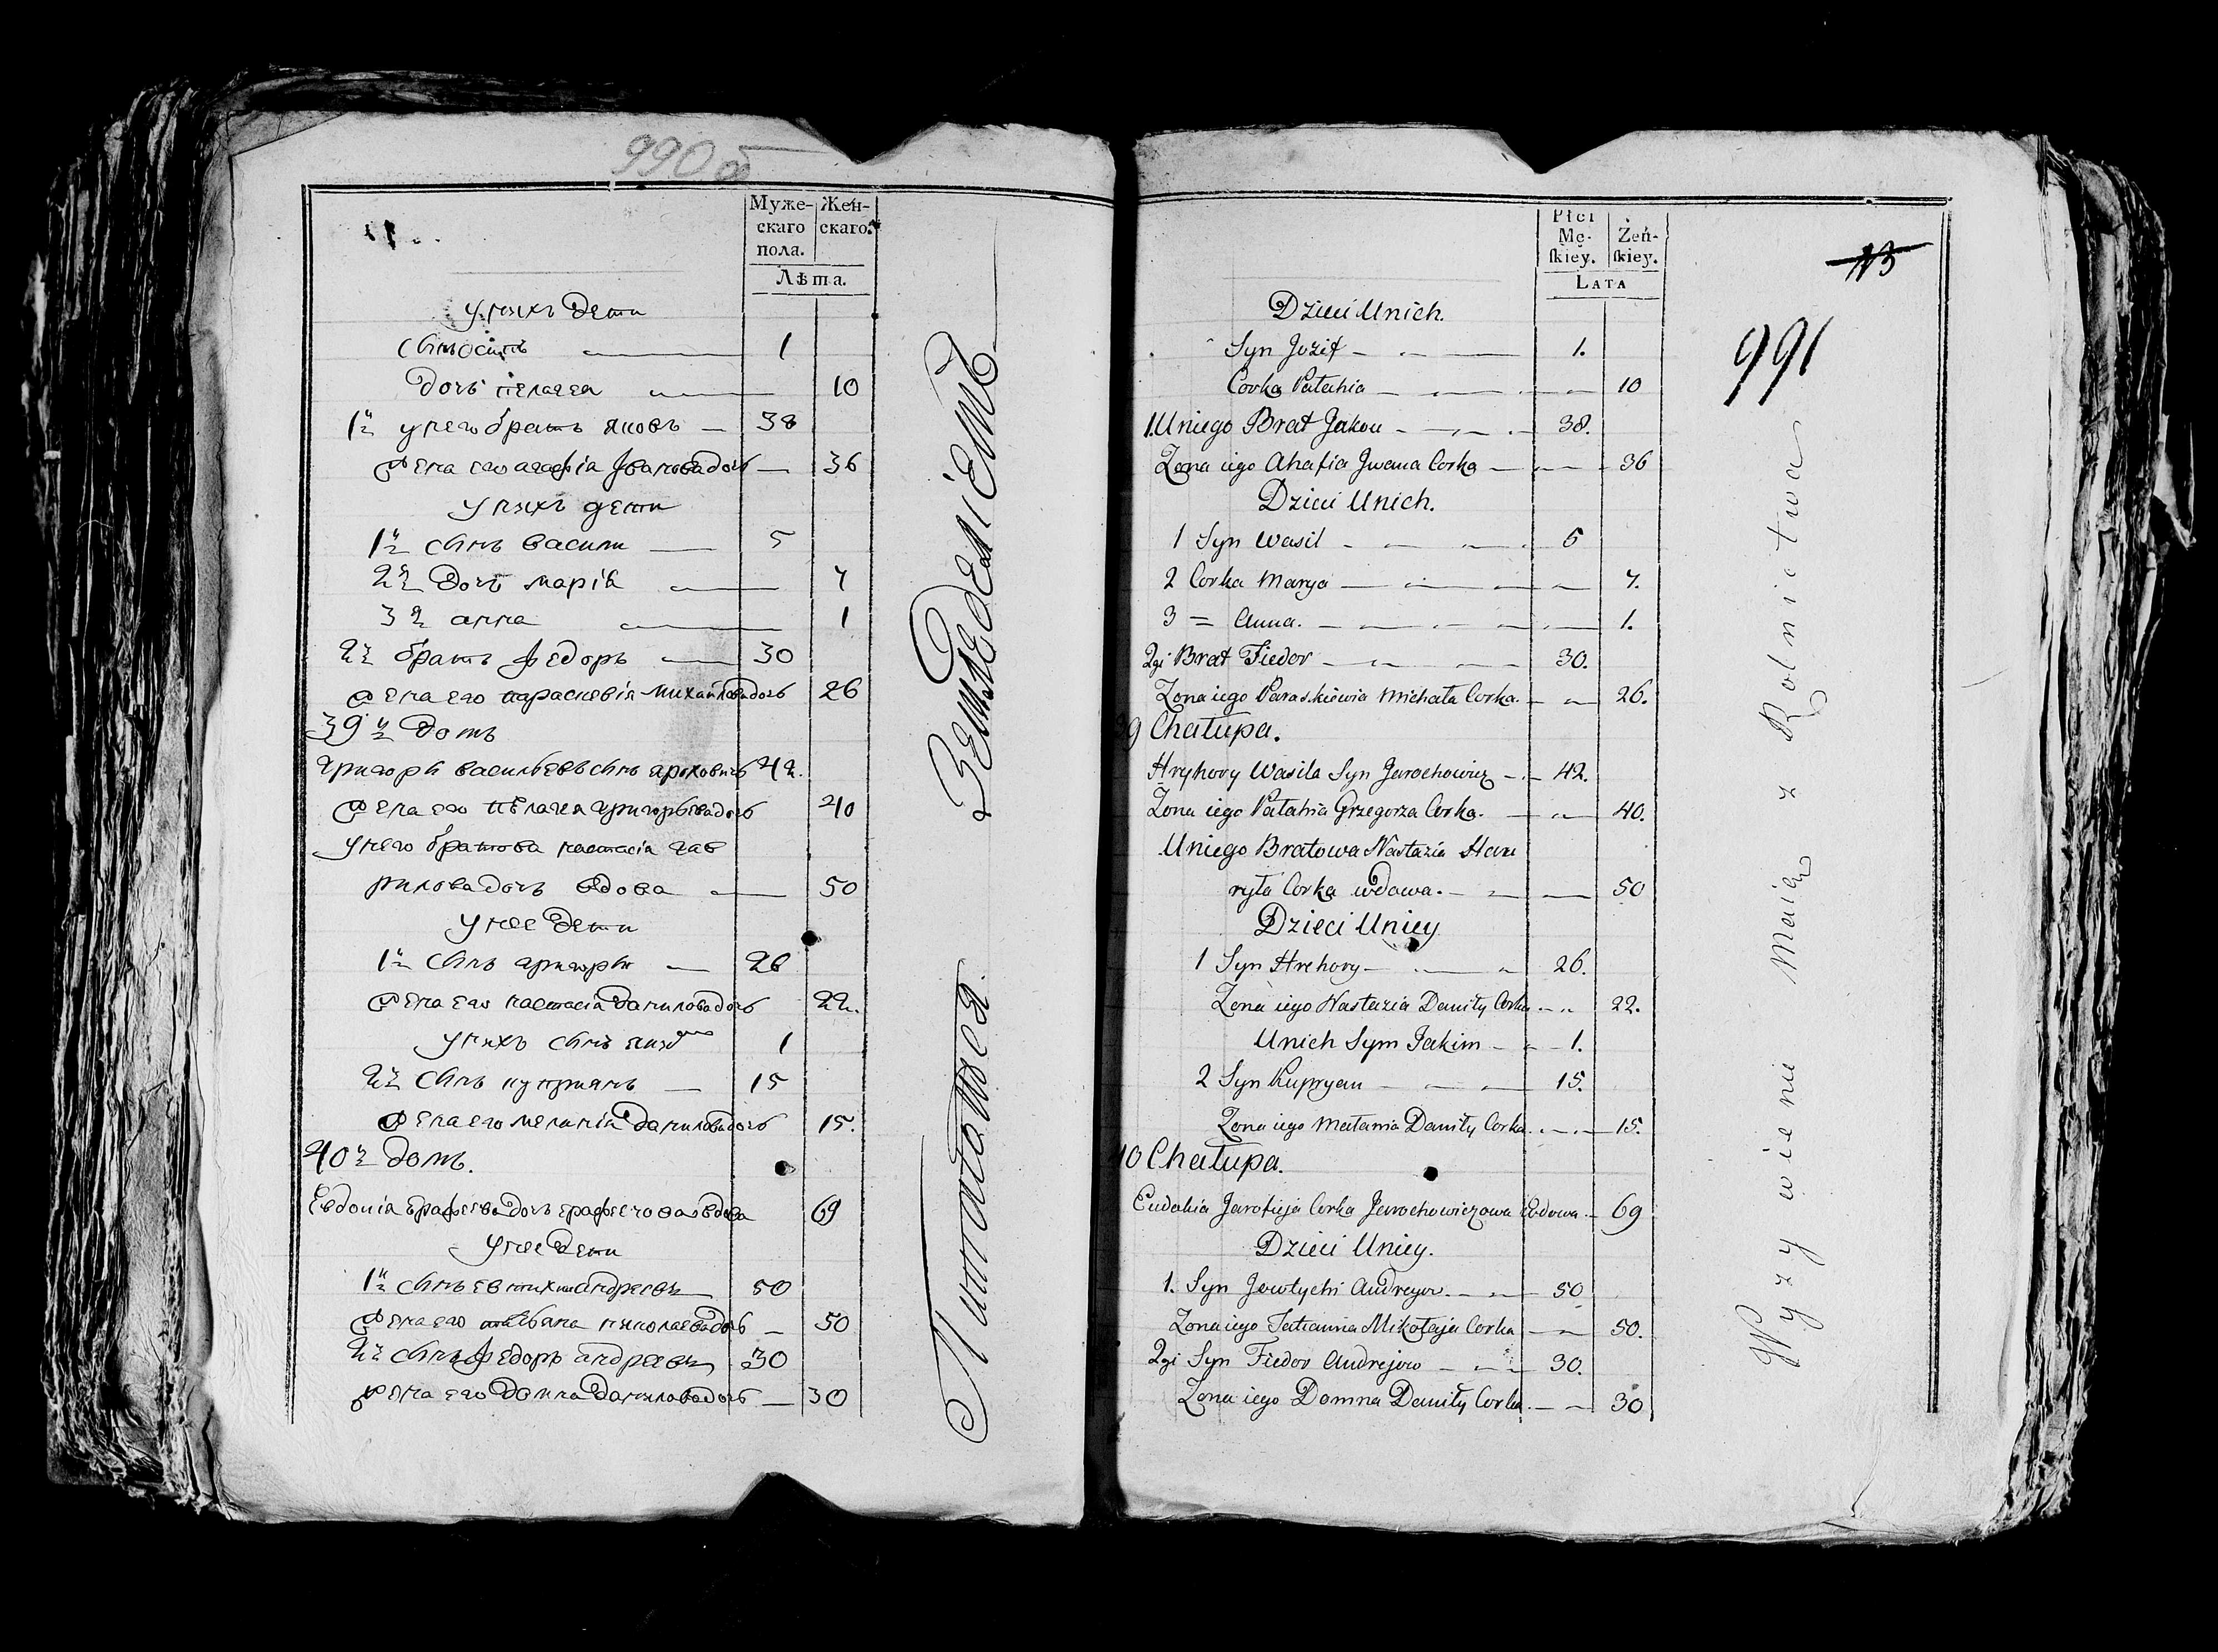 990 об
Муже-
скаго
пола.
Жен-
скаго.
Лѣта.
у нихъ дети
сынъ осипъ 1
дочь пелагея 10
1й у него братъ яковъ 38
жена его агафія Ивановадочь 36
у нихъ дети
1й сынъ васили 5
2я дочь марія 7
3я анна 1
2й братъ федоръ 30
жена его параскевія михайловадочь 26
39й домъ
григори васильевъ сынъ яроховичъ 42.
жена его пѣлагея григорьевадочь 40
у него братова настасія гав
риловадочь вдова 50
у нее дети
1й сынъ григори 26
жена его настасія даниловадочь 22.
у нихъ сынъ яким 1
2й сынъ куприянъ 15
жена его меланія даниловадочь 15.
40й домъ.
Евдокія вдова 69
у нее дети
1й сынъ евтихи андреевъ 50
жена его татьяна николаевадочь 50
2й сынъ федоръ андреевъ 30
жена его домна даниловадочь 30
Питаются Земледелiемъ
Płci
Mę-
ſkiey.
Żeń-
ſkiey.
LATA
Dzieci Unich.
Syn Jozif 1.
Corka Pałahia 10
1. Uniego Brat Jakow 38.
Zona iego Ahafia Jwana Corka 36
Dzieci Unich.
1 Syn Wasil 5
2 Corka Marya 7.
3 = Anna. 1.
2gi Brat Fiedor 30.
Zona iego Paraskiewia Michała Corka. 26.
39 Chałupa.
Hryhory Wasila Syn Jarochowicz 42.
Zona iego Pałahia Grzegorza Corka. 40.
Uniego Bratowa Nastazia Haw
ryła Corka wdowa. 50
Dzieci Uniey
1 Syn Hrehory 26.
Zona iego Nastazia Daniły Corka 22.
Unich Syn Jakim 1.
2 Syn Kupryan 15.
Zona iego Małania Daniły Corka 15.
40 Chałupa.
Eudokia Jarofieja Corka Jarochowiczowa Wdowa 69
Dzieci Uniey.
1. Syn Jewtychi Andreyow. 50
Zona iego Tatianna Mikołaja Corka 50.
2gi Syn Fiedor Andrejow 30.
Zona iego Domna Daniły Corka. 30
991
Wyzywienie Maią z Rolnictwa